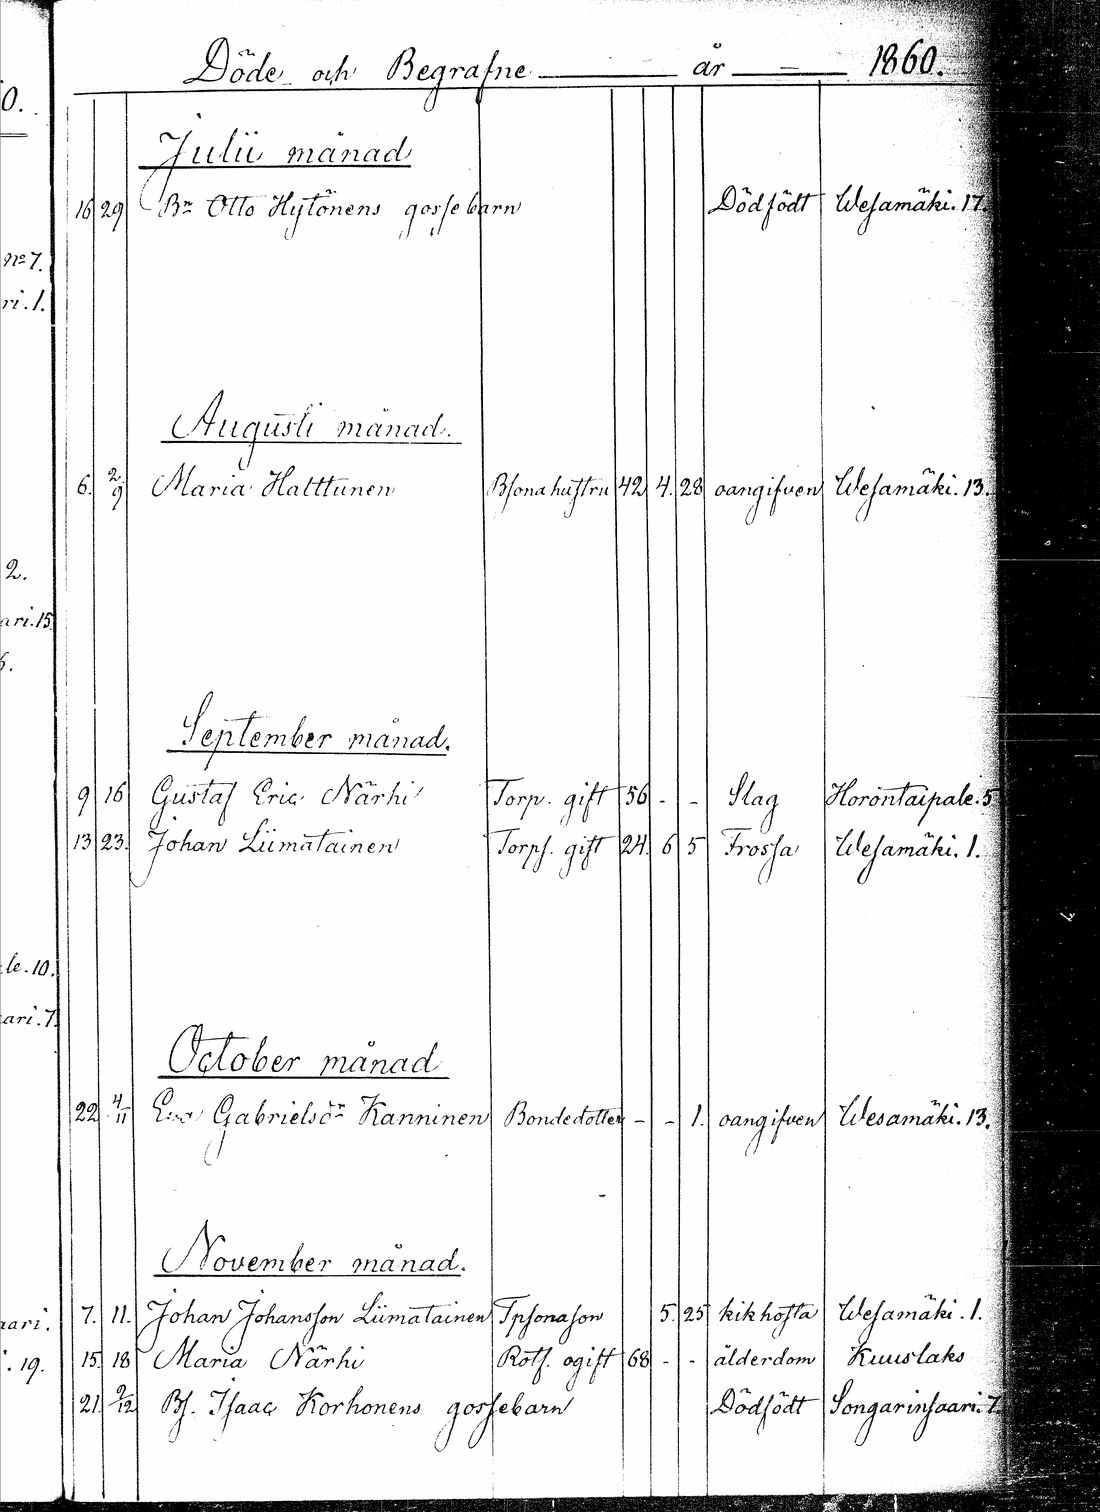 Döde och Begrafne år 1860.
0.
Julii månad
16 29 Bn Otto Hytönens gossebarn Dödfödt Wesamäki. 17.
no 7.
ri. 1.
Augusti månad.
6. 2/9 Maria Hatttunen Bsona hustru 42 4. 28 oangifven Wesamäki. 13.
2.
ari. 15
6.
September månad.
9 16 Gustaf Eric Närhi Torp. gift 56 - - Slag Horontaipale. 5
13 23. Johan Liimatainen Torps. gift 24. 6 5 Frossa Wesamäki. 1.
le. 10.
ari. 7.
October månad
22 4/11 Eva Gabrielsdr Kanninen Bondedotter - - 1. oangifven Wesamäki. 13.
November månad.
aari. 7. 11. Johan Johansson Liimatainen Tpsonason 5. 25 kikhosta Wesamäki. 1.
. 19. 15. 18 Maria Närhi Rotf. ogift 68 - - ålderdom Kuuslaks
21. 2/12 Bs. Isaac Korhonens gossebarn Dödfödt Songarinsaari. 7.